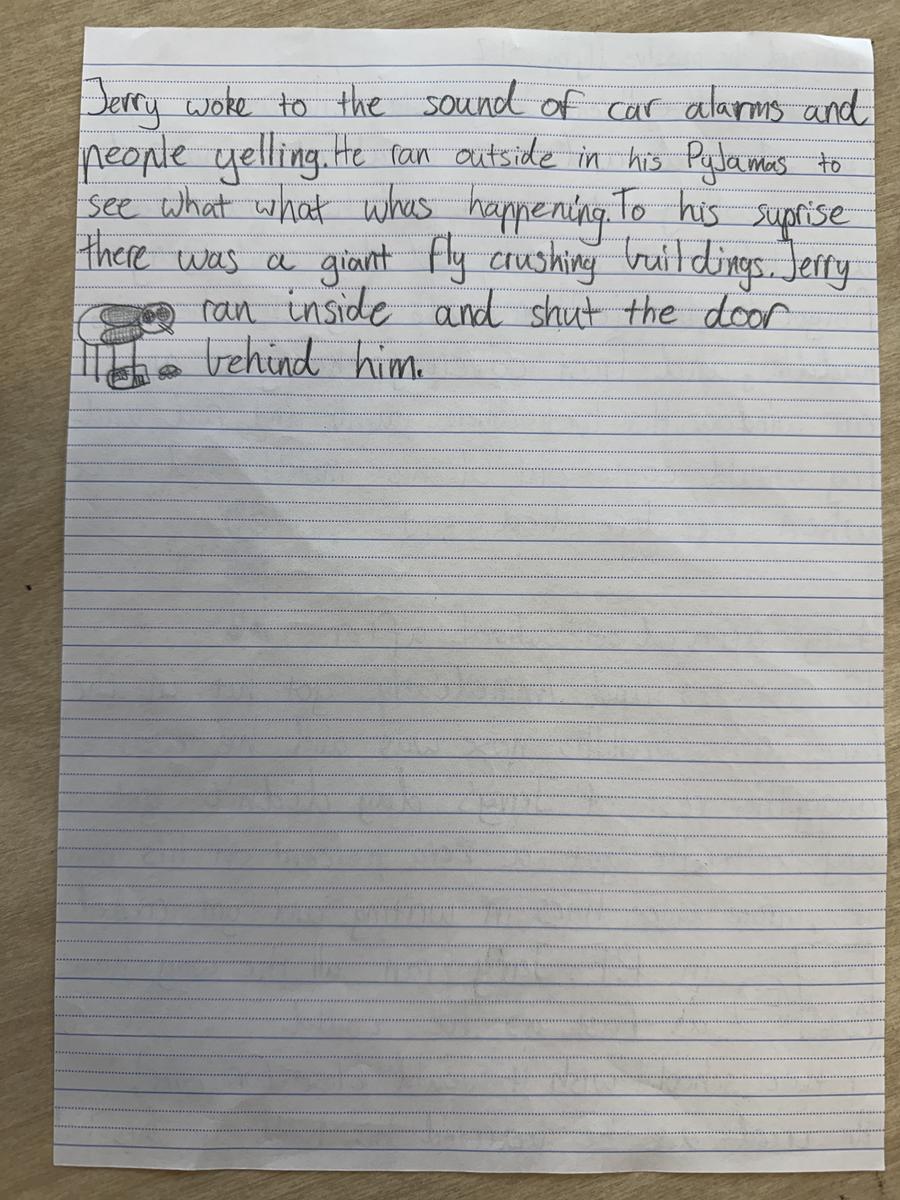 Jerry woke to the sound of car alarms and
people yelling. He ran outside in his Pyjamas to
see what what whas happening. To his suprise
there was a giant fly crushing buildings. Jerry
ran inside and shut the door
behind him.